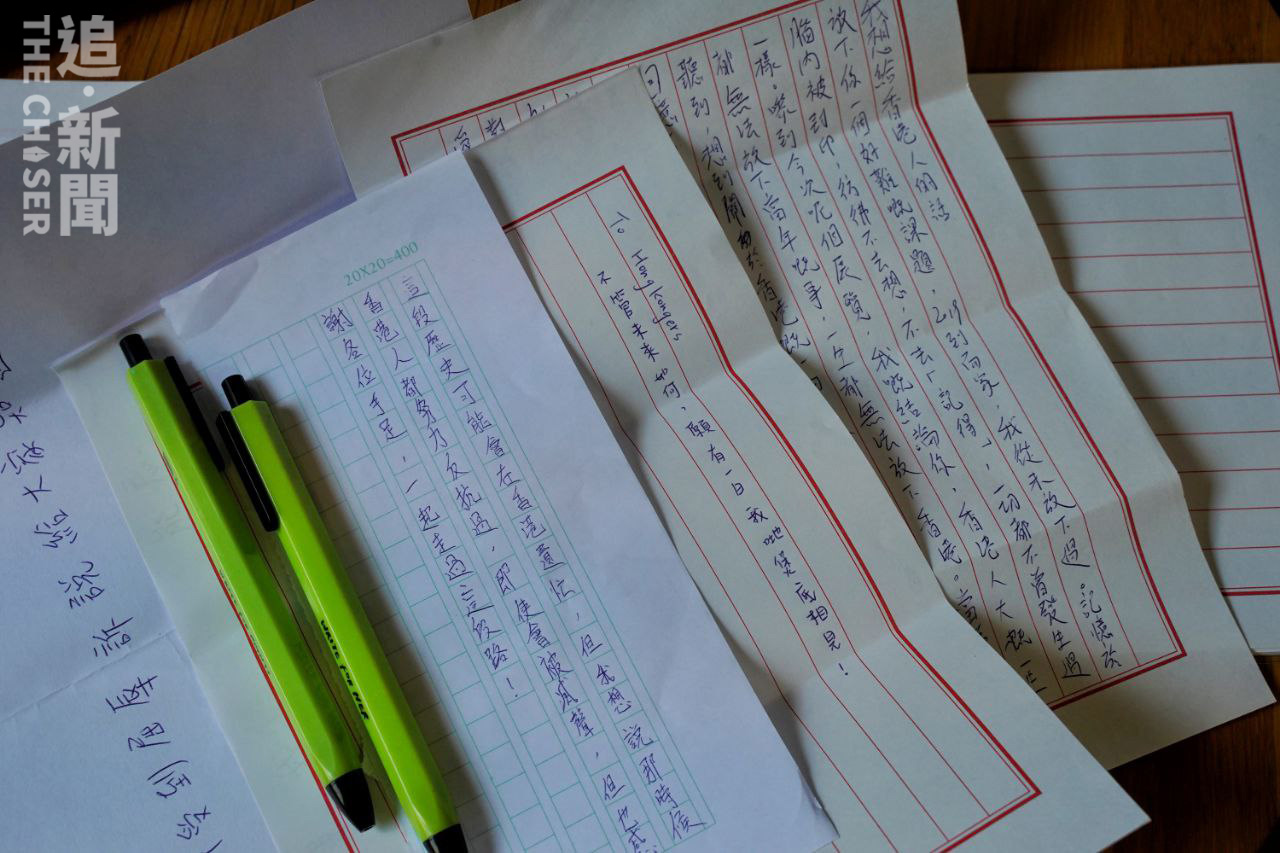 追·新聞
THE CHASER
我想給香港人的話
放下係一個好難嘅課題，2019到而家，我從未放下過。記憶於
腦內被刻印，彷彿不去想，不去「記得」，一切都不曾發生過
一樣。嚟到今次呢個展覽，我嘅結論係，香港人大概一世
都無法放下當年嘅事，一生都無法放下香港。當
聽到，想到關於香港嘅
To: Hong Kongers
不管未來如何，願有一日我哋煲底相見！
20X20=400
這段歷史可能會在香港遺忘，但我想說那時候
香港人都努力反抗過，即使會被滅聲，但也感
謝各位手足，一起走過這段路！